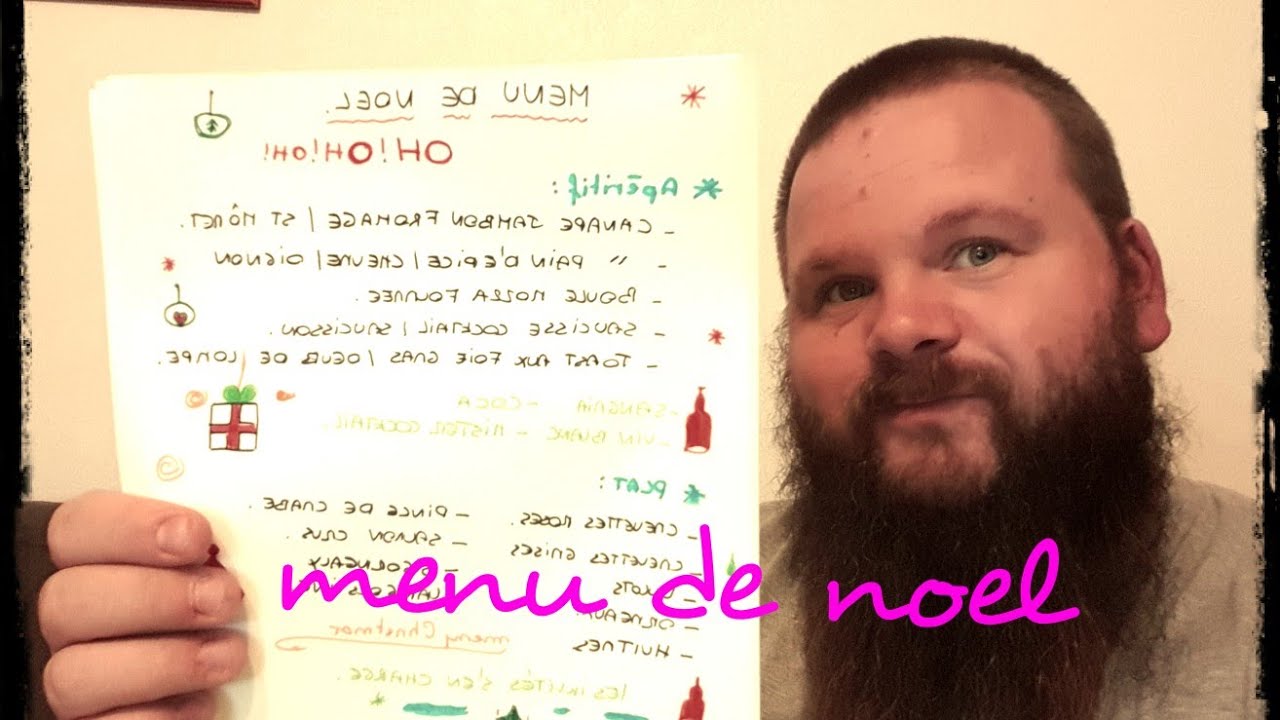 MENU DE NOEL.
OH!OH!OH!
* Apéritif :
- CANAPE JAMBON FROMAGE / ST MÔRET.
- " PAIN D'EPICE / CHEVRE / OIGNON
- BOULE MOZZA FOURREE.
- SAUCISSE COCKTAIL / SAUCISSON.
- TOAST AUX FOIE GRAS / OEUFS DE LOMPE.
- SANGRIA - COCA
- VIN BLANC - MISTER COCKTAIL
* PLAT :
- CREVETTES ROSES. - PINCE DE CRABE.
- CREVETTES GRISES - SAUMON CRUS.
- HUITRES
merry Christmas
les invités s'en charge.
menu de noel